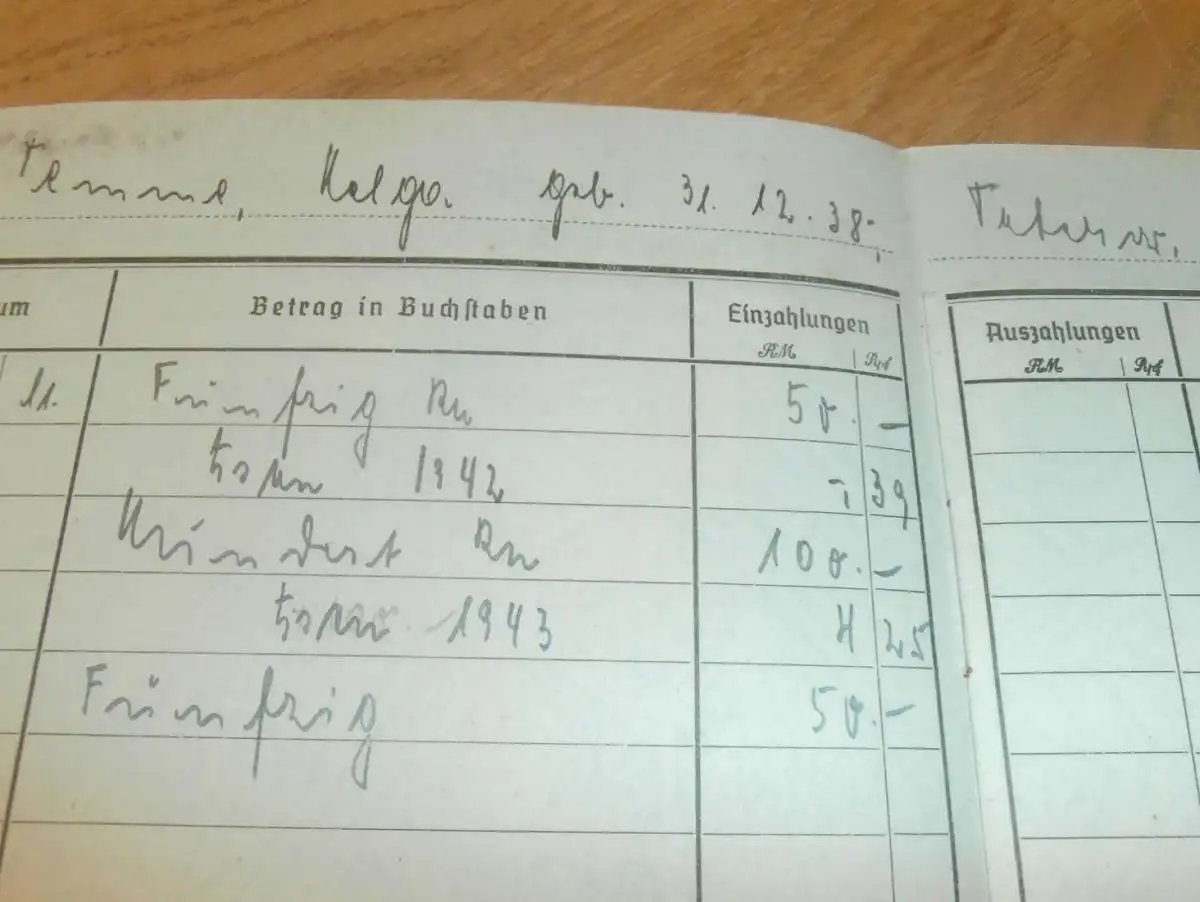 Temme, Helga. geb. 31. 12. 38.
um Betrag in Buchstaben Einzahlungen Auszahlungen
RM Rpf RM Rpf
11. Fünfzig RM 50. –
Zinsen 1942 – 39
Hundert RM 100. –
Zinsen 1943 4 25
Fünfzig 50. –